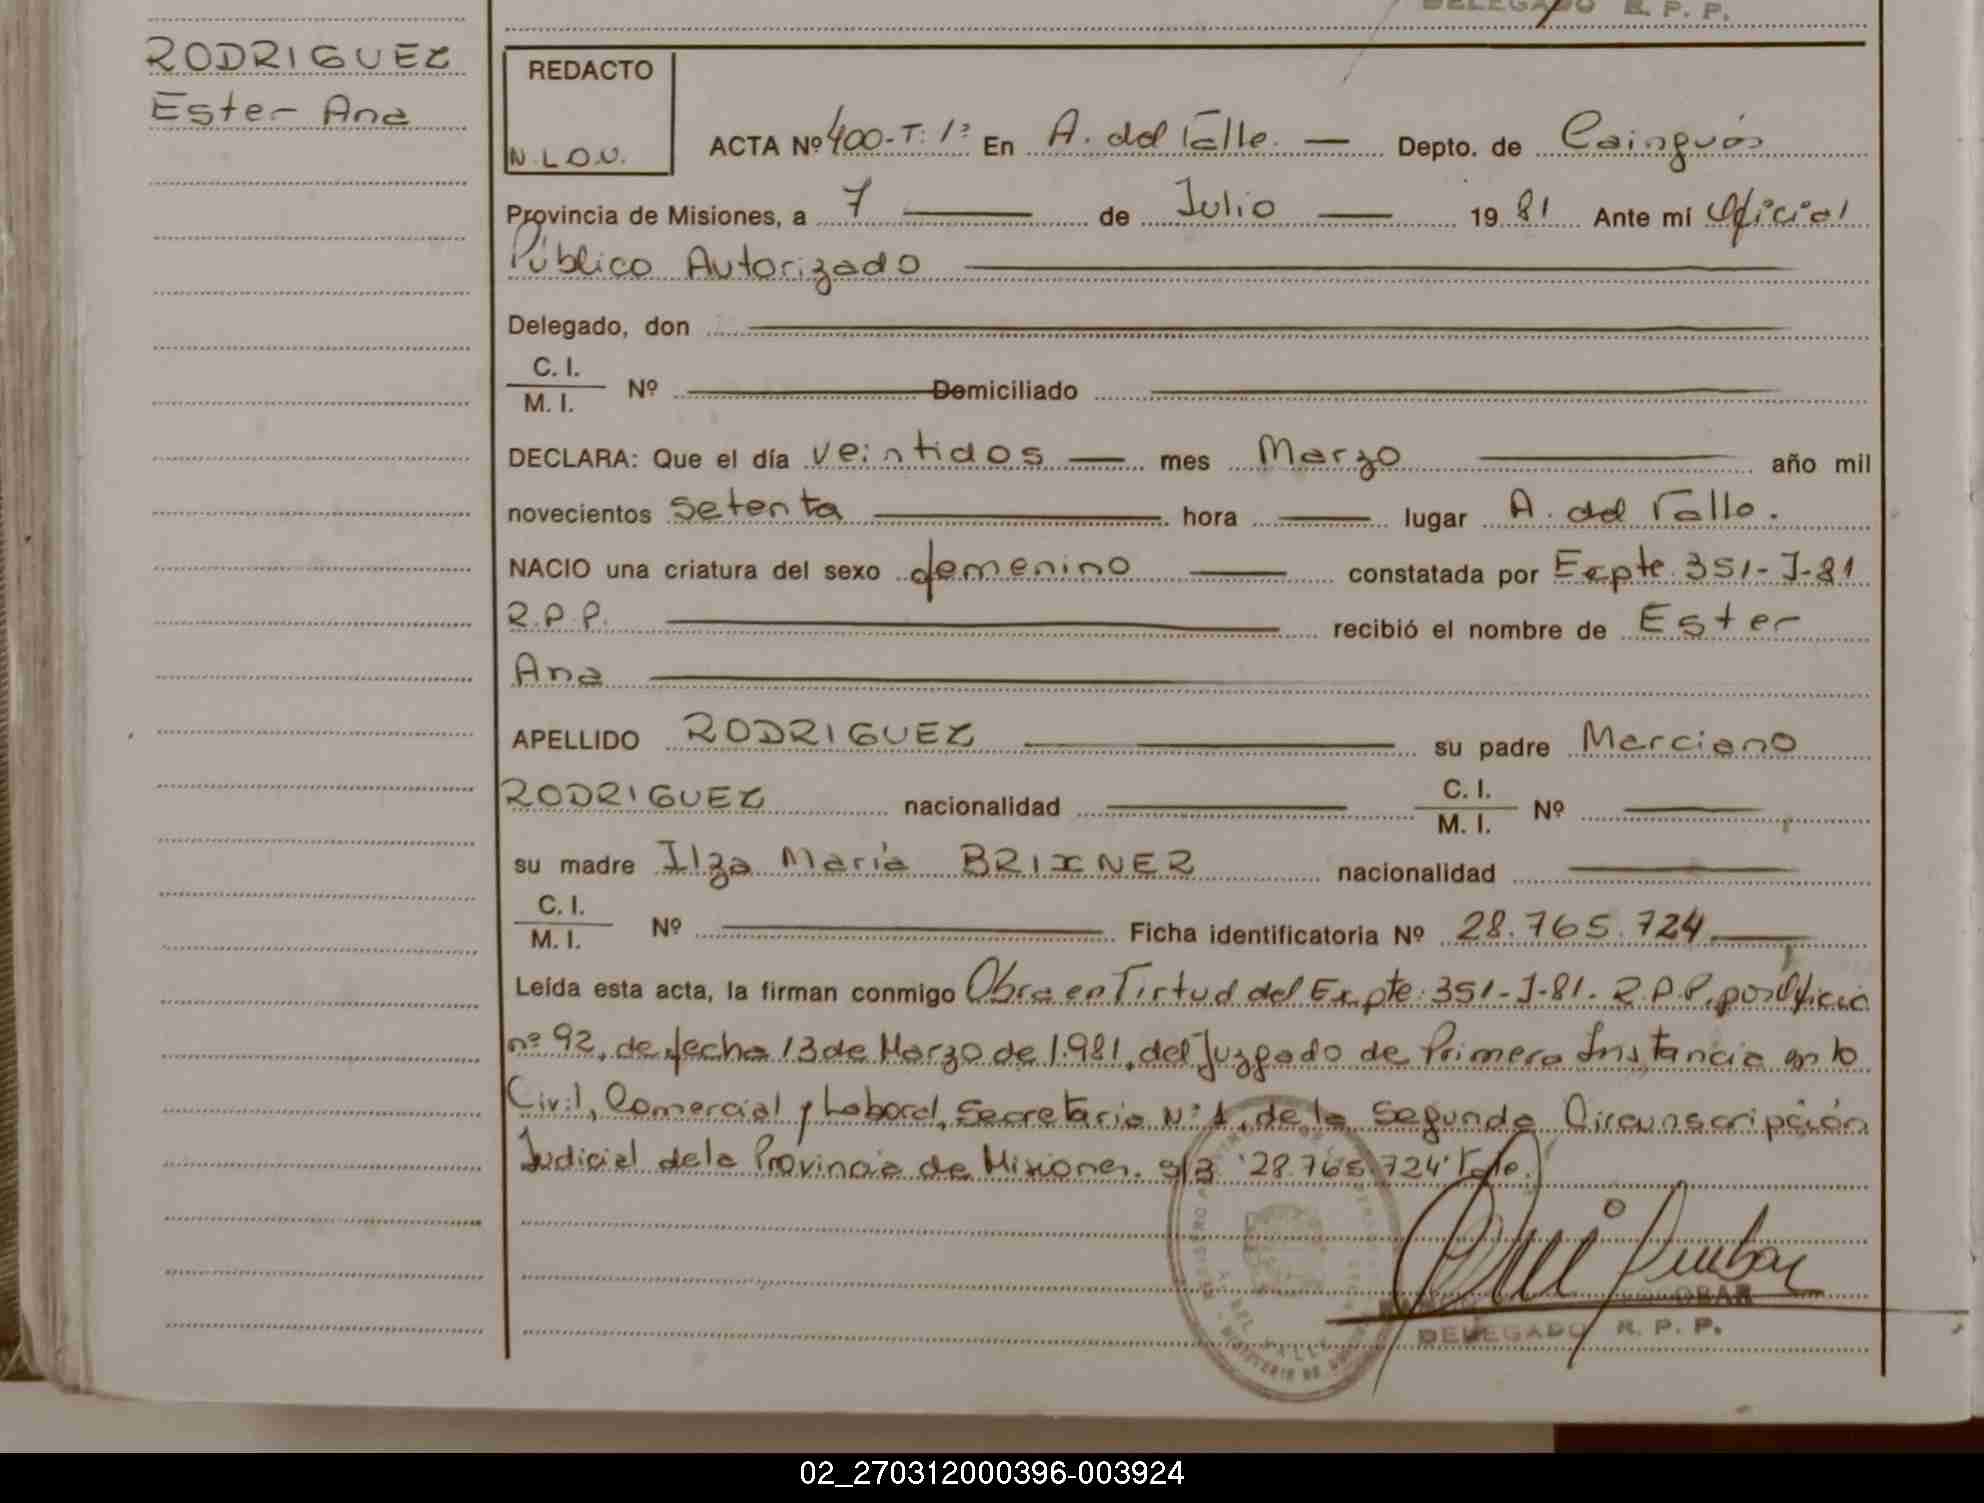 DELEGADO R. P. P.
RODRIGUEZ
Ester Ana
REDACTO
N.L.O.U.
ACTA Nº 400-T: 1º En A. del Valle. Depto. de Cainguás
Provincia de Misiones, a 7 de Julio 19 81 Ante mí Oficial
Público Autorizado
Delegado, don
C. I.
M. I. Nº Domiciliado
DECLARA: Que el día veintidos mes Marzo año mil
novecientos setenta hora lugar A. del Valle.
NACIO una criatura del sexo femenino constatada por Expte. 351-J-81
R.P.P. recibió el nombre de Ester
Ana
APELLIDO RODRIGUEZ su padre Marciano
RODRIGUEZ nacionalidad C. I.
M. I. Nº
su madre Ilza María BRIXNER nacionalidad
C. I.
M. I. Nº Ficha identificatoria Nº 28.765.724
Leída esta acta, la firman conmigo Obra en Virtud del Expte: 351-J-81. R.P.P. por Oficio
nº 92, de fecha 13 de Marzo de 1.981, del Juzgado de Primera Instancia en lo
Civil, Comercial y Laboral, Secretaria Nº 1, de la Segunda Circunscripción
Judicial de la Provincia de Misiones. s/r "28.765.724" Vale.
OBAR
DELEGADO R. P. P.
02_270312000396-003924